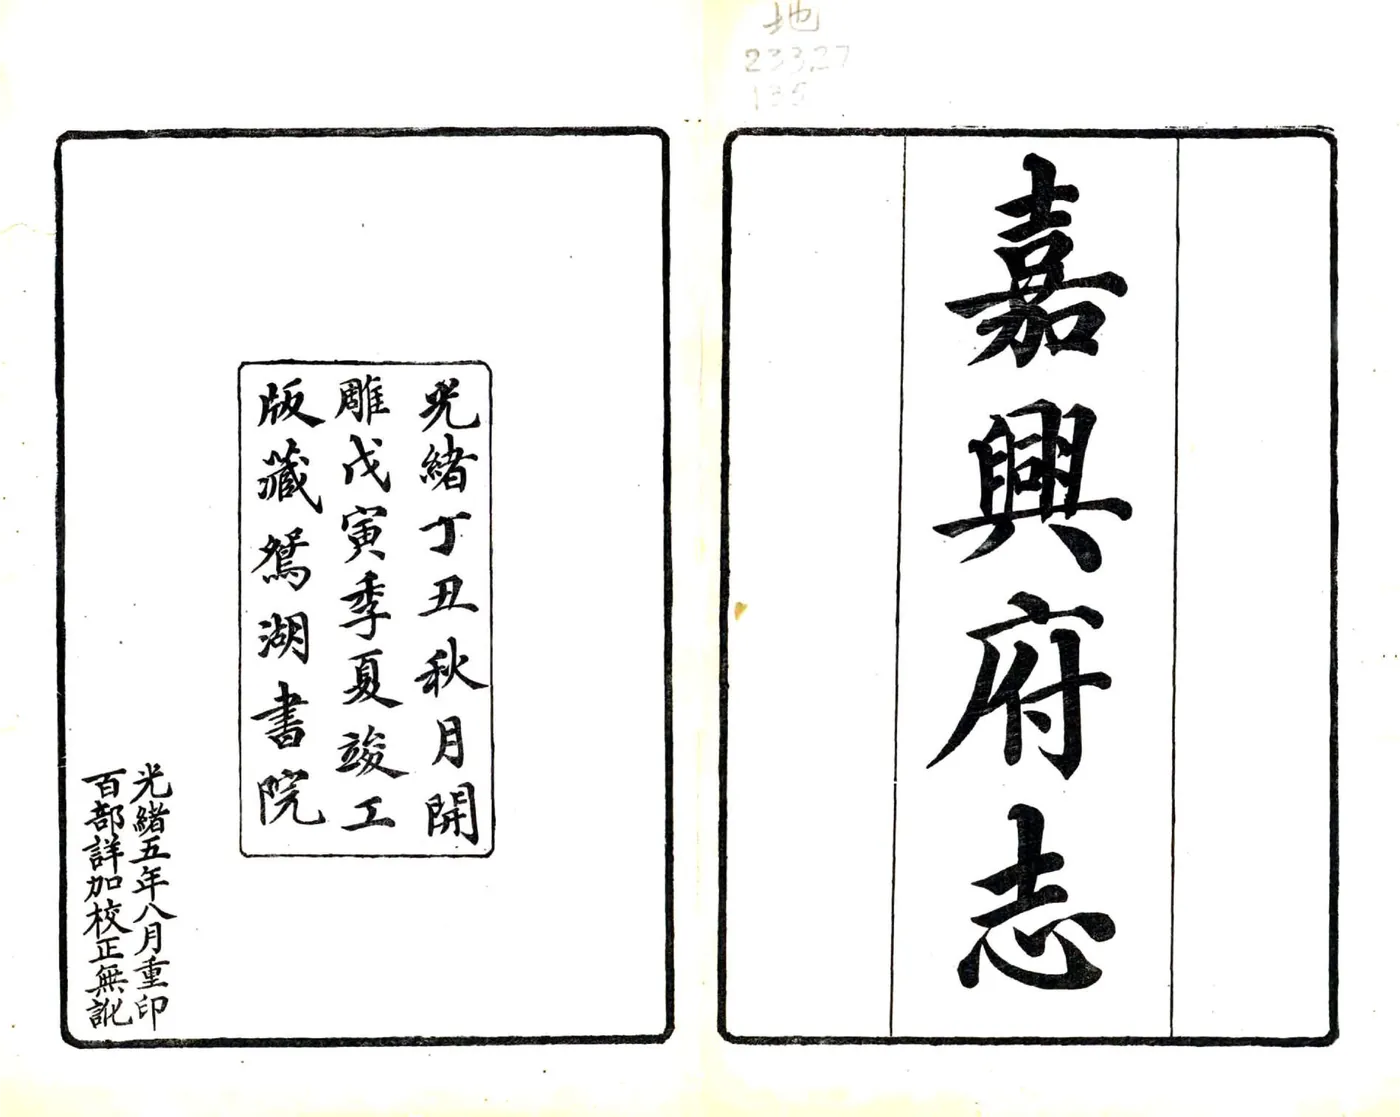 地
233.27
135
嘉興府志
光緒丁丑秋月開
雕戊寅季夏竣工
版藏鴛湖書院
光緒五年八月重印
百部詳加校正無訛